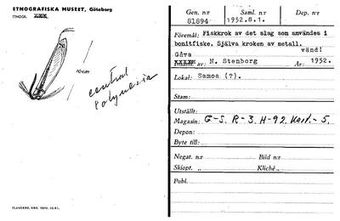 ETNOGRAFISKA MUSEET, Göteborg
10 cm
central
Polynesia
Gen. nr Saml. nr Dep. nr
81894 1952.8.1.
Föremål: Fiskkrok av det slag som användes i
bonitfiske. Själva kroken av metall.
vänd!
Gåva
av: N. Stenborg År 1952.
Lokal: Samoa (?).
Stam:
Utställt:
Magasin: G-S. R-3. H-92. Kart.-5.
Depon:
Byte till:
Negat. nr Bild nr
Skiopt. „ Kliché „
Publ.